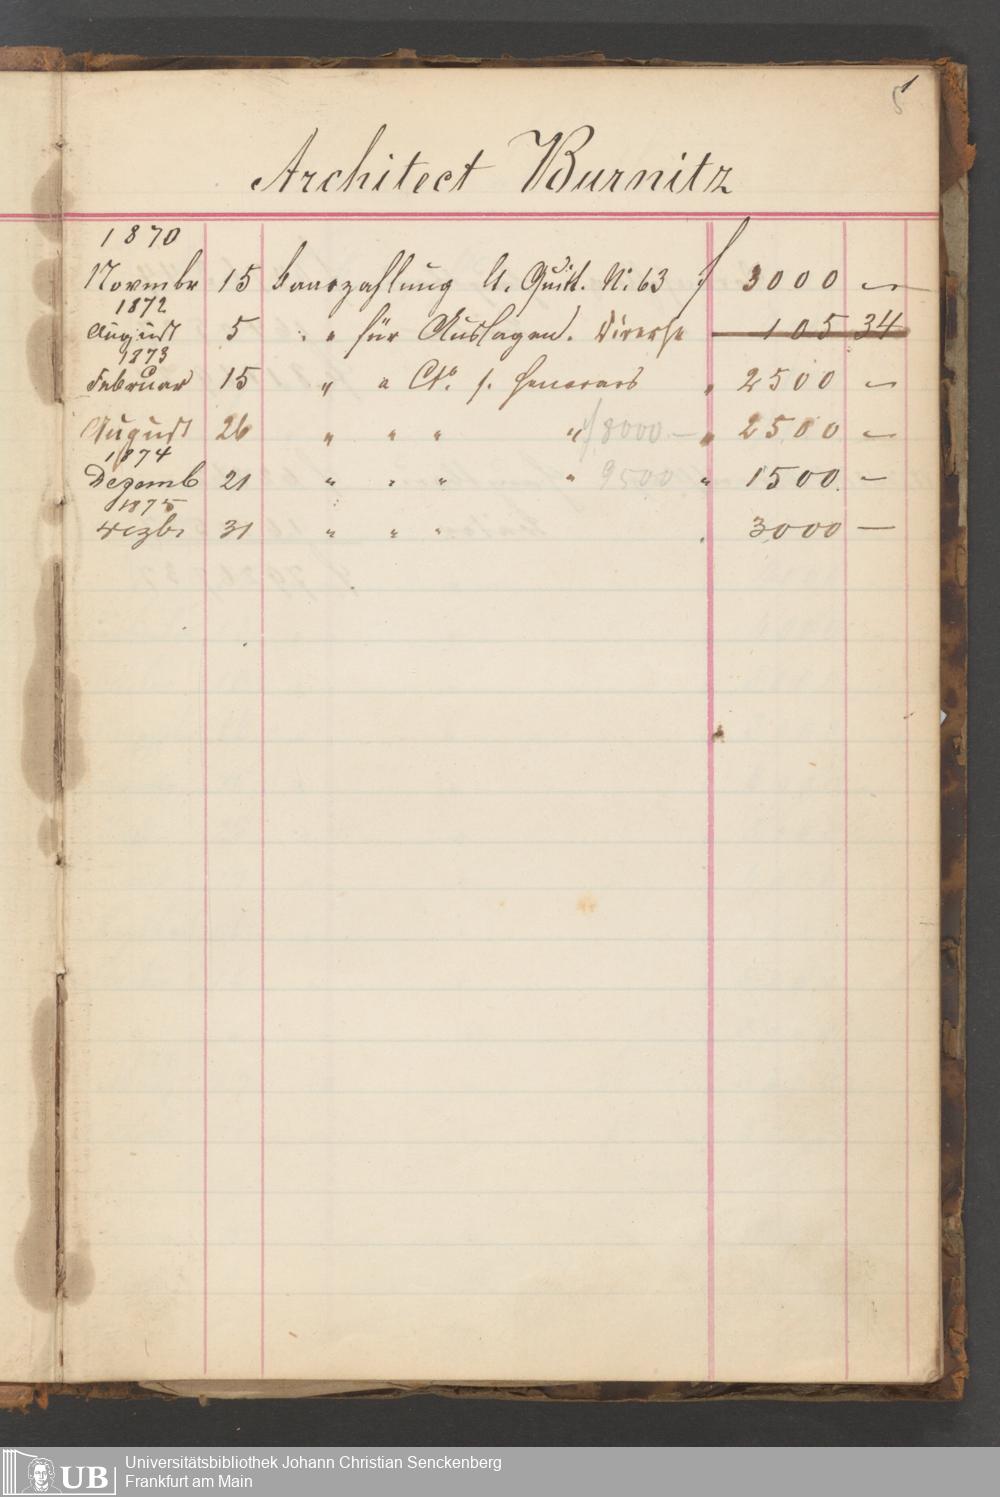 1
5
Architect Burnitz
1870
Novembr 15 Baarzahlung lt. Quitt. No 63 f 3000 —
1872
August 5 " " für Auslagen. Diverse 105 34
1873
Februar 15 " a Cto. f. Honorars " 2500 —
August 26 " " " " f 8000 — " 2500 —
1874
Dezemb 21 " " " " 9500 " 1500 —
1875
Dezbr 31 " " " " 3000 —
UB
Universitätsbibliothek Johann Christian Senckenberg
Frankfurt am Main